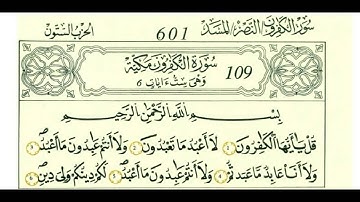 سورة الكافرون النصر المسد 601 الحزب الستون
سُورَةُ الْكَافِرُونَ مَكِّيَّةٌ 109
وَهِيَ سِتُّ ءَايَاتٍ 6
بِسْمِ اللَّهِ الرَّحْمَٰنِ الرَّحِيمِ
قُلْ يَٰأَيُّهَا الْكَٰفِرُونَ ١ لَا أَعْبُدُ مَا تَعْبُدُونَ ٢ وَلَا أَنتُمْ عَٰبِدُونَ مَا أَعْبُدُ ٣
وَلَا أَنَا عَابِدٌ مَّا عَبَدتُّمْ ٤ وَلَا أَنتُمْ عَٰبِدُونَ مَا أَعْبُدُ ٥ لَكُمْ دِينُكُمْ وَلِيَ دِينِ ٦